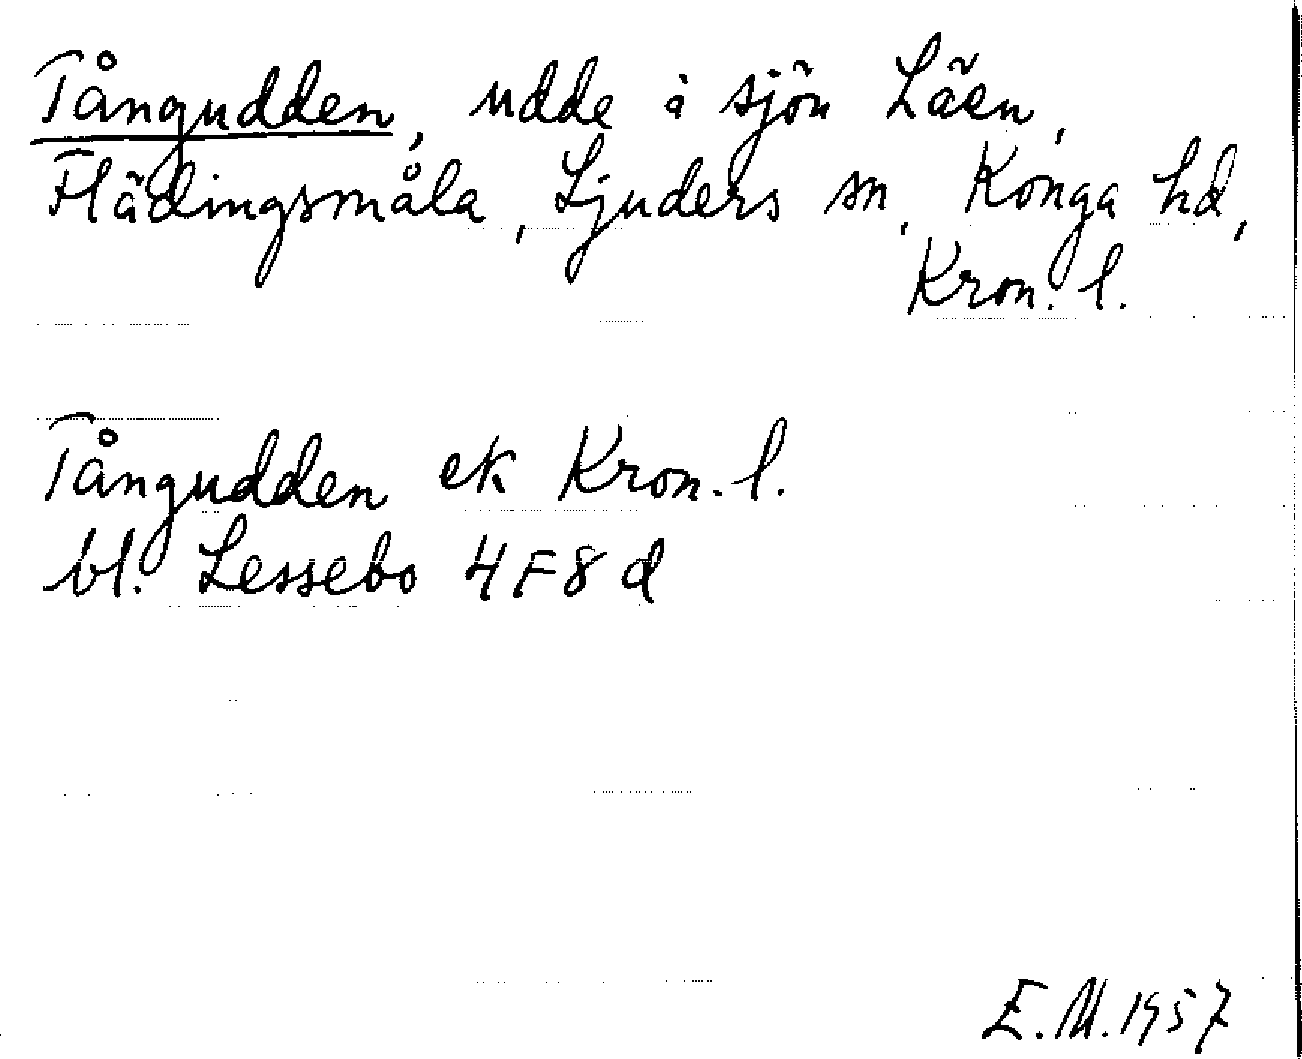 Tångudden, udde i sjön Läen,
Flädingsmåla, Ljuders sn, Konga hd,
Kron. l.
Tångudden ek Kron. l.
bl. Lessebo 4F8d
E.M. 1957